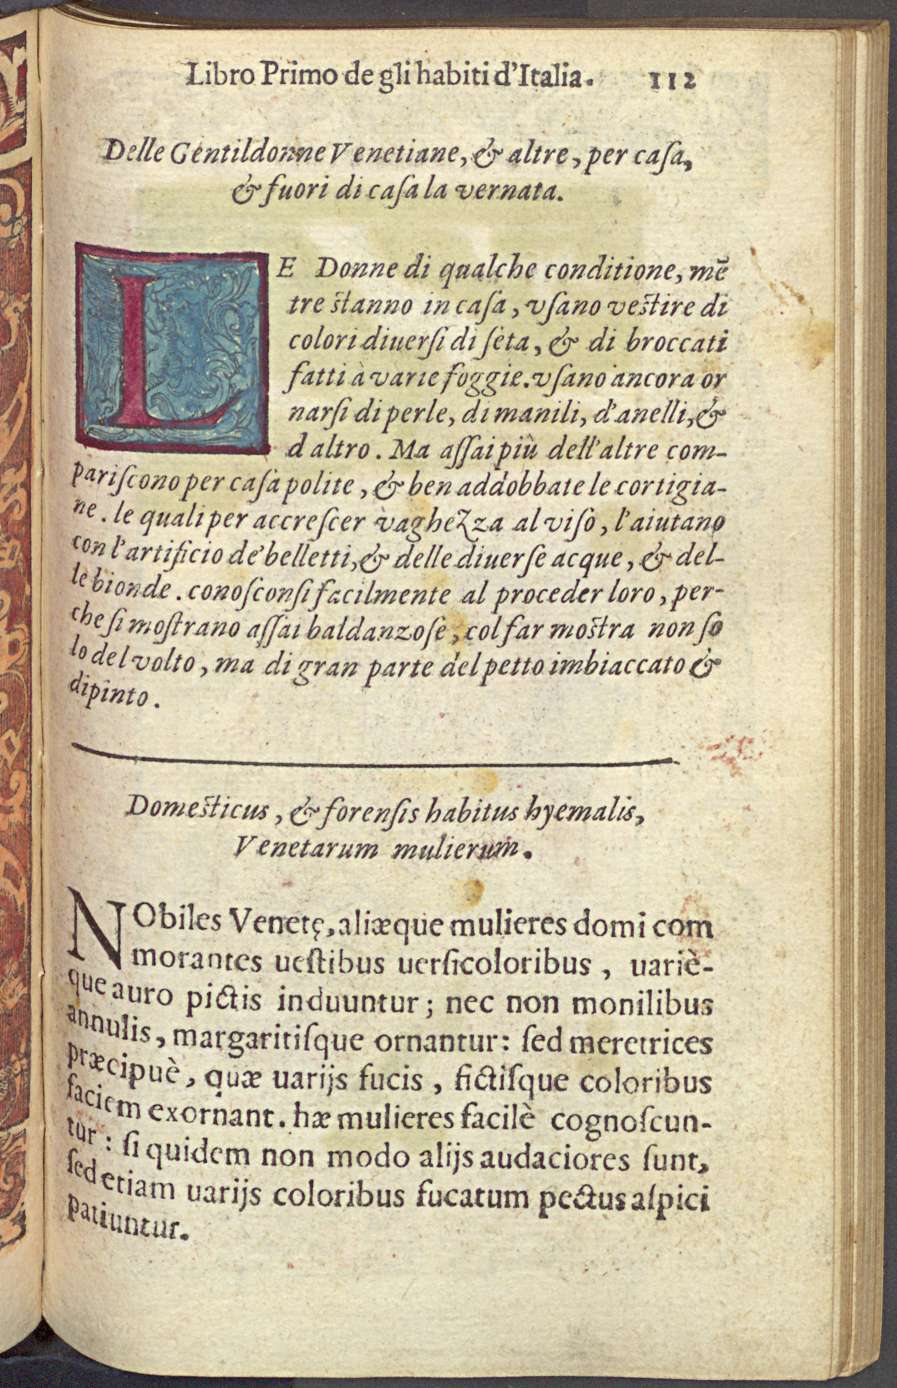 Libro Primo de gli habiti d'Italia. 112
Delle Gentildonne Venetiane, & altre, per caſa,
& fuori di caſa la vernata.
LE Donne di qualche conditione, mē
tre ſtanno in caſa, vſano veſtire di
colori diuerſi di ſeta, & di broccati
fatti à varie foggie. vſano ancora or
narſi di perle, di manili, d'anelli, &
d altro. Ma aſſai più dell'altre com-
pariſcono per caſa polite, & ben addobbate le cortigia-
ne. le quali per accreſcer vaghezza al viſo, l'aiutano
con l'artificio de' belletti, & delle diuerſe acque, & del-
le bionde. conoſconſi facilmente al proceder loro, per-
che ſi moſtrano aſſai baldanzoſe, col far moſtra non ſo
lo del volto, ma di gran parte del petto imbiaccato &
dipinto.
Domeſticus, & forenſis habitus hyemalis,
Venetarum mulierum.
NObiles Venetę, aliæque mulieres domi com
morantes ueſtibus uerſicoloribus, uariè-
que auro pictis induuntur; nec non monilibus
annulis, margaritiſque ornantur: ſed meretrices
præcipuè, quæ uarijs fucis, fictiſque coloribus
faciem exornant. hæ mulieres facilè cognoſcun-
tur: ſi quidem non modo alijs audaciores ſunt,
ſed etiam uarijs coloribus fucatum pectus aſpici
patiuntur.